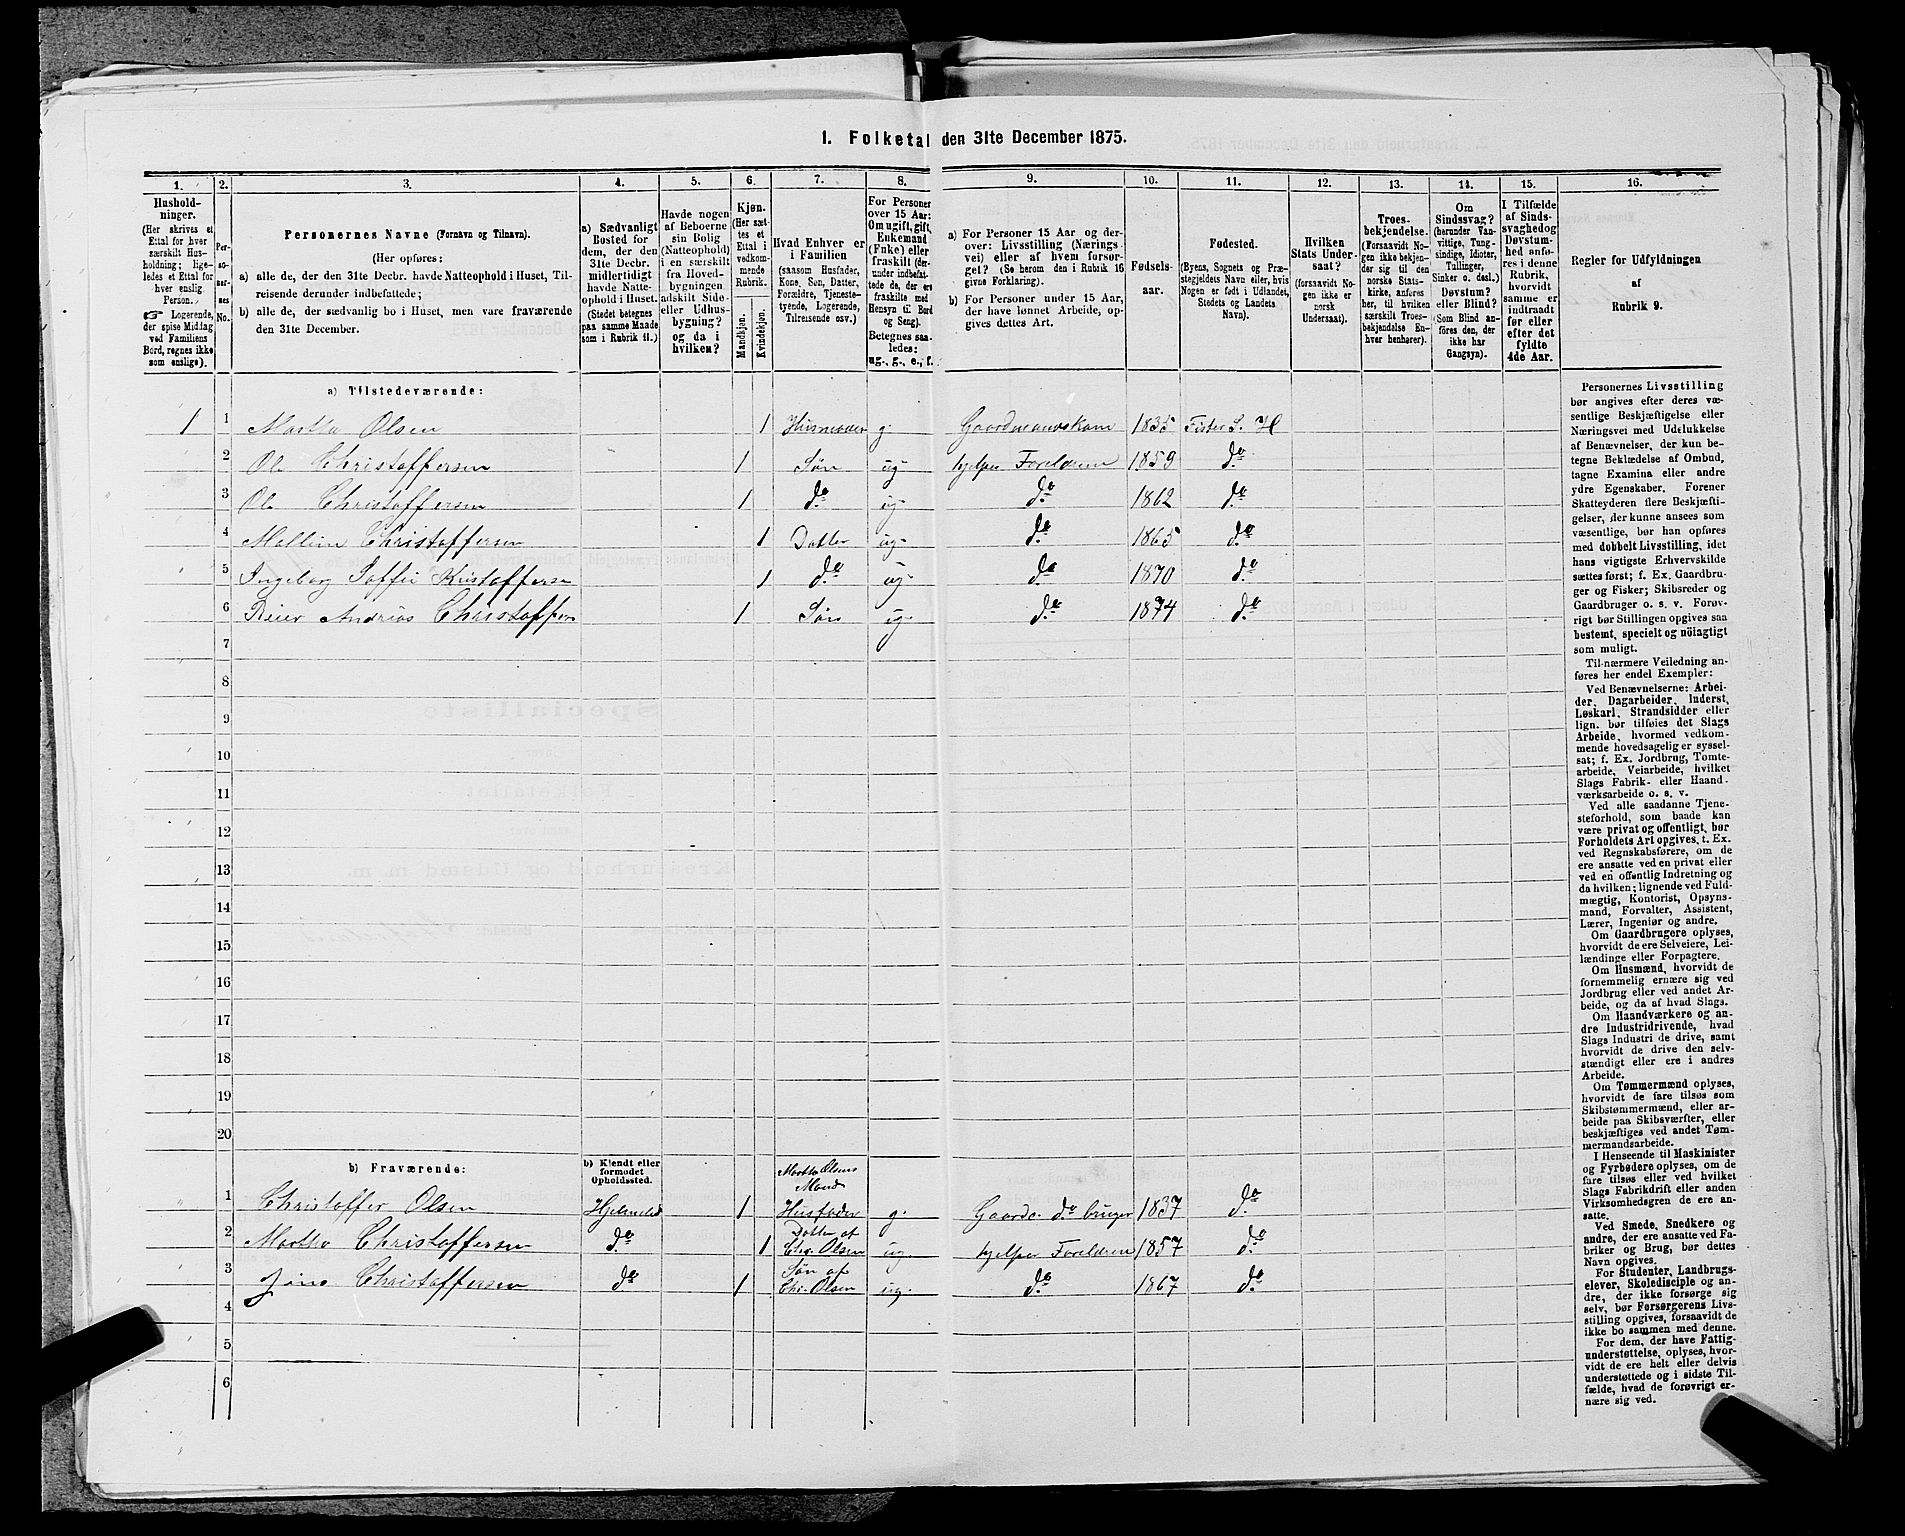 1. Folketal den 31te December 1875.
1. 2. 3. 4. 5. 6. 7. 8. 9. 10. 11. 12. 13. 14. 15. 16.
Hushold-
ninger.
(Her skrives et
Ettal for hver
særskilt Hus-
holdning; lige-
ledes et Ettal for
hver enslig
Person.
☞ Logerende,
der spise Middag
ved Familiens
Bord, regnes ikke
som enslige).
Per-
so-
ner-
nes
No.
Personernes Navne (Fornavn og Tilnavn).
(Her opføres:
a) alle de, der den 31te Decbr. havde Natteophold i Huset, Til-
reisende derunder indbefattede;
b) alle de, der sædvanlig bo i Huset, men vare fraværende
den 31te December.
a) Sædvanligt
Bosted for
dem, der den
31te Decbr.
midlertidigt
havde Natte-
ophold i Huset.
(Stedet betegnes
paa samme Maade
som i Rubrik 11.)
Havde nogen
af Beboerne
sin Bolig
(Natteophold)
i en særskilt
fra Hoved-
bygningen
adskilt Side-
eller Udhus-
bygning?
og da i
hvilken?
Kjøn.
(Her sæt-
tes et
Ettal i
vedkom-
mende
Rubrik.
Mandkjøn.
Kvindekjøn.
Hvad Enhver er
i Familien
(saasom Husfader,
Kone, Søn, Datter,
Forældre, Tjeneste-
tyende, Logerende,
Tilreisende osv.)
For Personer
over 15 Aar:
Om ugift, gift,
Enkemand
(Enke) eller
fraskilt (der-
under indbefat-
tede de, der ere
fraskilte med
Hensyn til Bord
og Seng).
Betegnes saa-
ledes:
ug., g., e., f.
a) For Personer 15 Aar og der-
over: Livsstilling (Nærings-
vei) eller af hvem forsør-
get? (Se herom den i Rubrik 16
givne Forklaring).
b) For Personer under 15 Aar,
der have lønnet Arbeide, op-
gives dettes Art.
Fødsels-
aar.
Fødested.
(Byens, Sognets og Præ-
stegjeldets Navn eller, hvis
Nogen er født i Udlandet,
Stedets og Landets
Navn).
Hvilken
Stats Under-
saat?
(forsaavidt No-
gen ikke er
norsk
Undersaat).
Troes-
bekjendelse.
(Forsaavidt No-
gen ikke bekjen-
der sig til den
norske Stats-
kirke, anføres
her, til hvilken
særskilt Troes-
bekjendelse En-
hver henhører).
Om
Sindssvag?
(herunder Van-
vittige, Tung-
sindige, Idioter,
Tullinger,
Sinker o. desl.)
Døvstum?
eller Blind?
(Som Blind an-
føres den, der
ikke har
Gangsyn).
I Tilfælde
af Sinds-
svaghed og
Døvstum-
hed anfø-
res i denne
Rubrik,
hvorvidt
samme er
indtraadt
før eller
efter det
fyldte
4de Aar.
Regler for Udfyldningen
af
Rubrik 9.
a) Tilstedeværende:
1 1 Martha Olsen 1 Husmoder g. Gaardmandskone 1835 Fister S. H
2 Ole Christoffersen 1 Søn ug. hjelper Foreldren 1859 do.
3 Ole Christoffersen 1 do. ug. do. 1862 do.
4 Malline Christoffersen 1 Datter ug. do. 1865 do.
5 Ingeborg Soffie Kristoffersen 1 do. ug. do. 1870 do.
6 Reier Andrias Christoffersen 1 Søn ug. do. 1874 do.
7
8
9
10
11
12
13
14
15
16
17
18
19
20
b) Fraværende:
b) Kjendt eller
formodet
Opholdssted.
Martha Olsens
Mand
1 Christoffer Olsen 1 Husfader g. Gaardbruger 1837 do.
2 Martha Christoffersen do. 1 Datter af Chr. Olsen ug. hjelper Foreldren 1857 do.
3 Christoffersen do. 1 Søn af Chr. Olsen ug. do. 1867 do.
4
5
6
Personernes Livsstilling
bør angives efter deres væ-
sentlige Beskjæftigelse eller
Næringsvei med Udelukkelse
af Benævnelser, der kun be-
tegne Beklædelse af Ombud,
tagne Examina eller andre
ydre Egenskaber. Forener
Skatteyderen flere Beskjæfti-
gelser, der kunne ansees som
væsentlige, bør han opføres
med dobbelt Livsstilling, idet
hans vigtigste Erhvervskilde
sættes først; f. Ex. Gaardbru-
ger og Fisker; Skibsreder og
Gaardbruger o. s. v. Forøv-
rigt bør Stillingen opgives saa
bestemt, specielt og nöiagtigt
som muligt.
Til nærmere Veiledning an-
føres her endel Exempler:
Ved Benævnelserne: Arbei-
der, Dagarbeider, Inderst,
Løskarl, Strandsidder eller
lign. bør tilføies det Slags
Arbeide, hvormed vedkom-
mende hovedsagelig er syssel-
sat; f. Ex. Jordbrug, Tømte-
arbeide, Veiarbeide, hvilket
Slags Fabrik- eller Haand-
værksarbeide o. s. v.
Ved alle saadanne Tjene-
steforhold, som baade kan
være privat og offentligt, bør
Forholdets Art opgives, t. Ex.
ved Regnskabsførere, om de
ere ansatte ved en privat eller
ved en offentlig Indretning og
da hvilken; lignende ved Fuld-
mægtig, Kontorist, Opsyns-
mand, Forvalter, Assistent,
Lærer, Ingeniør og andre.
Om Gaardbrugere oplyses,
hvorvidt de ere Selveiere, Lei-
lændinge eller Forpagtere.
Om Husmænd, hvorvidt de
fornemmelig ernære sig ved
Jordbrug eller ved andet Ar-
beide, og da af hvad Slags.
Om Haandværkere og an-
dre Industridrivende, hvad
Slags Industri de drive, samt
hvorvidt de drive den selv-
stændigt eller ere i andres
Arbeide.
Om Tømmermænd oplyses,
hvorvidt de fare tilsøs som
Skibstømmermænd, eller ar-
beide paa Skibsværfter, eller
beskjæftiges ved andet Tøm-
mermandsarbeide.
I Henseende til Maskinister
og Fyrbødere oplyses, om de
fare tilsøs eller ved hvilket
Slags Fabrikdrift eller anden
Virksomhedsgren de ere an-
satte.
Ved Smede, Snedkere og
andre, der ere ansatte ved Fa-
briker og Brug, bør dettes
Navn opgives.
For Studenter, Landbrugs-
elever, Skoledisciple og an-
dre, der ikke forsørge sig
selv, bør Forsørgerens Livs-
stilling opgives, forsaavidt de
ikke bo sammen med denne.
For dem, der have Fattig-
understøttelse, oplyses, hvor-
vidt de ere helt eller delvis
understøttede og i sidste Til-
fælde, hvad de forøvrigt er-
nære sig ved.